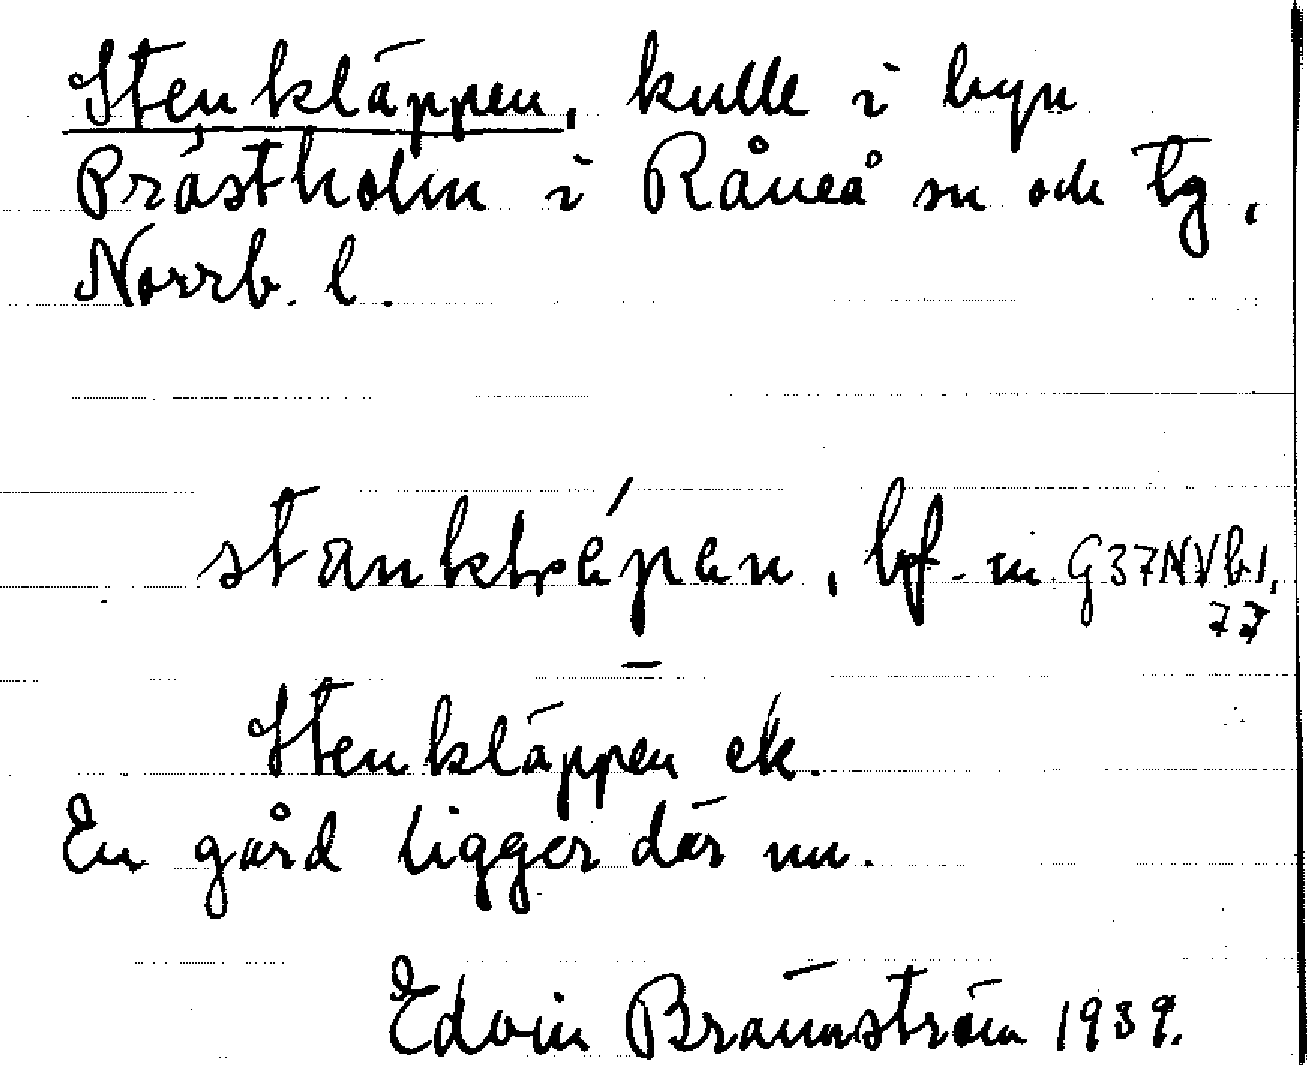 Stenkläppen, kulle i byn
Prästholm i Råneå sn och tg,
Norrb. l.
bf. m. G37NVb1,
77
Stenkläppen ek.
En gård ligger där nu.
Edvin Brännström 1939.